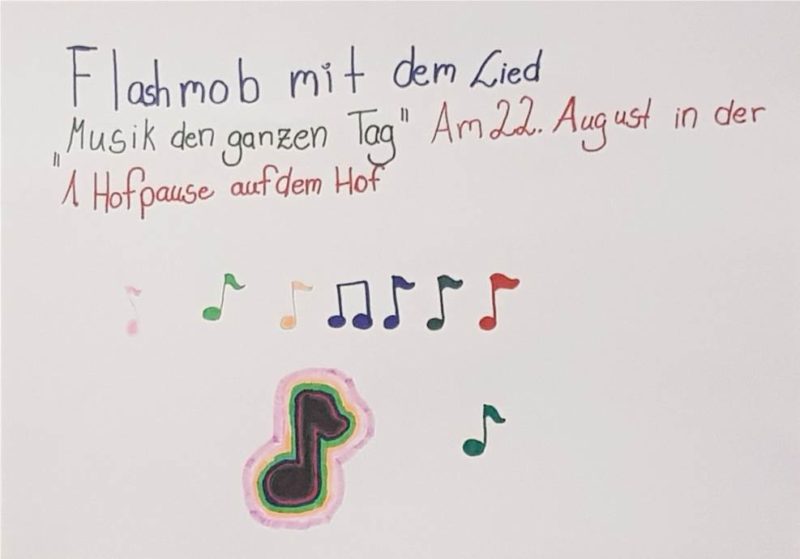 Flashmob mit dem Lied
„Musik den ganzen Tag" Am 22. August in der
1 Hofpause auf dem Hof